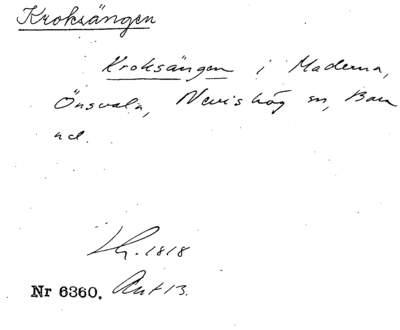 Kroksängen
Kroksängen i Maderna,
Önsvala, Nevishög sn, Bara
hd.
Lh. 1818
Nr 6360. Akt 13.